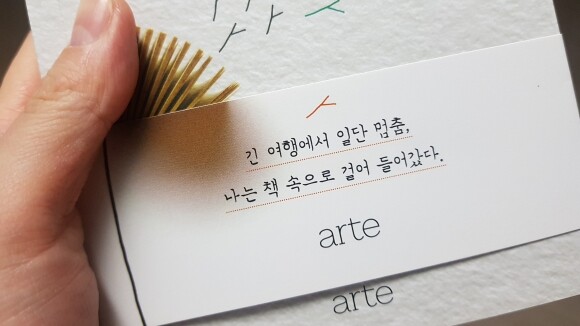 긴 여행에서 일단 멈춤,
나는 책 속으로 걸어 들어갔다.
arte
arte